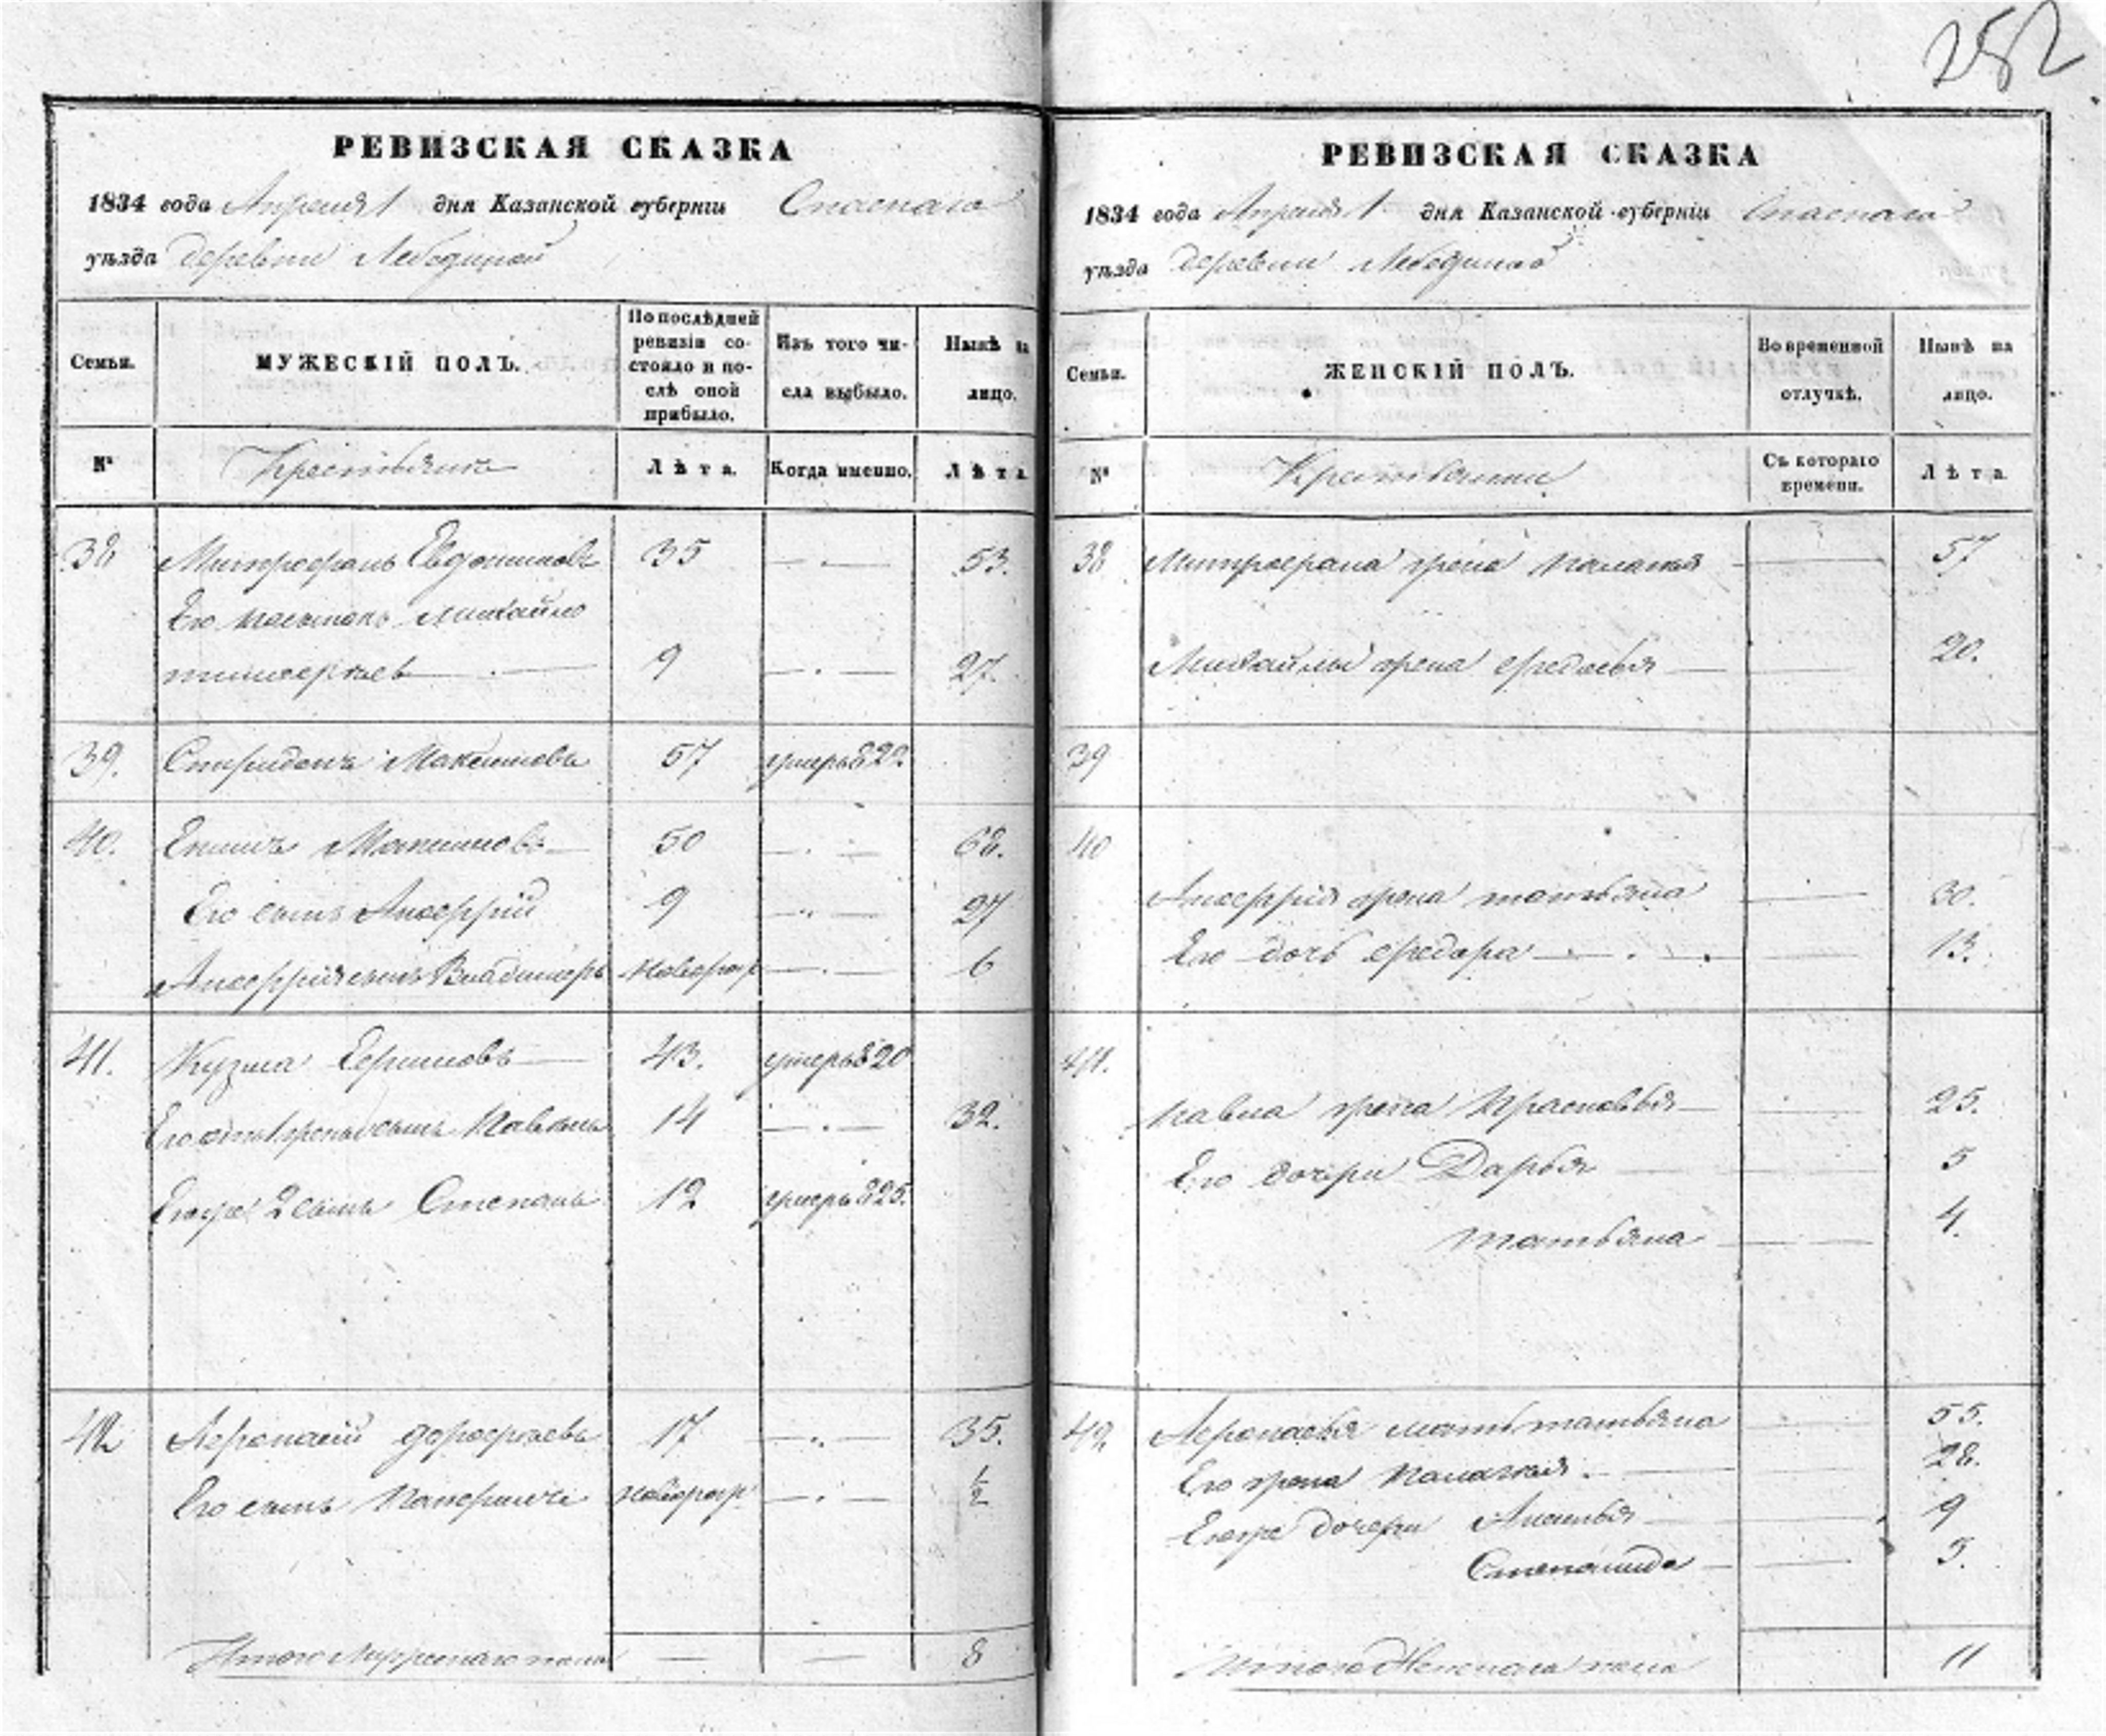 252
РЕВИЗСКАЯ СКАЗКА
1834 года Апреля 1 дня Казанской губерніи Спаскаго
уѣзда деревни Лебединой
Семьи.
МУЖЕСКІЙ ПОЛЪ.
По послѣдней
ревизіи со-
стояло и по-
слѣ оной
прибыло.
Изъ того чи-
сла выбыло.
Нынѣ на
лицо.
№ Крестьяне Лѣта. Когда именно. Лѣта
38 Митрофанъ Евдокимовъ 35 53.
Его Михайло
9 27.
39. Спиридонъ Максимовъ 57 умеръ 82
40. Максимовъ 50 68.
Его сынъ Алексѣй 9 27
сынъ Владимеръ новорож 6
41. Кузма Ефимовъ 43. умеръ 820
сынъ Павелъ 14 32.
Егоже 2 сынъ Степанъ 12 умеръ 825.
42 Афонасій Дорофѣевъ 17 35.
Его сынъ новорож 1/2
Итого Мужескаго пола 8
РЕВИЗСКАЯ СКАЗКА
1834 года Апреля 1 дня Казанской губерніи Спаскаго
уѣзда деревни Лебединой
Семьи.
ЖЕНСКІЙ ПОЛЪ.
Во временной
отлучкѣ.
Нынѣ на
лицо.
№ Крестьянки Съ котораго
времени. Лѣта
38 Митрофана жена Палагея 57
Михайлы жена Федосья 20.
39
40
жена Татьяна 30.
Его дочь Федора 13.
41.
Павла жена Прасковья 25.
Его дочери Дарья 5
Татьяна 4.
42. Афонасья мать Татьяна 55.
Его жена Палагея 28.
Егоже дочери 9
Степанида 5.
Итого Женскаго пола 11